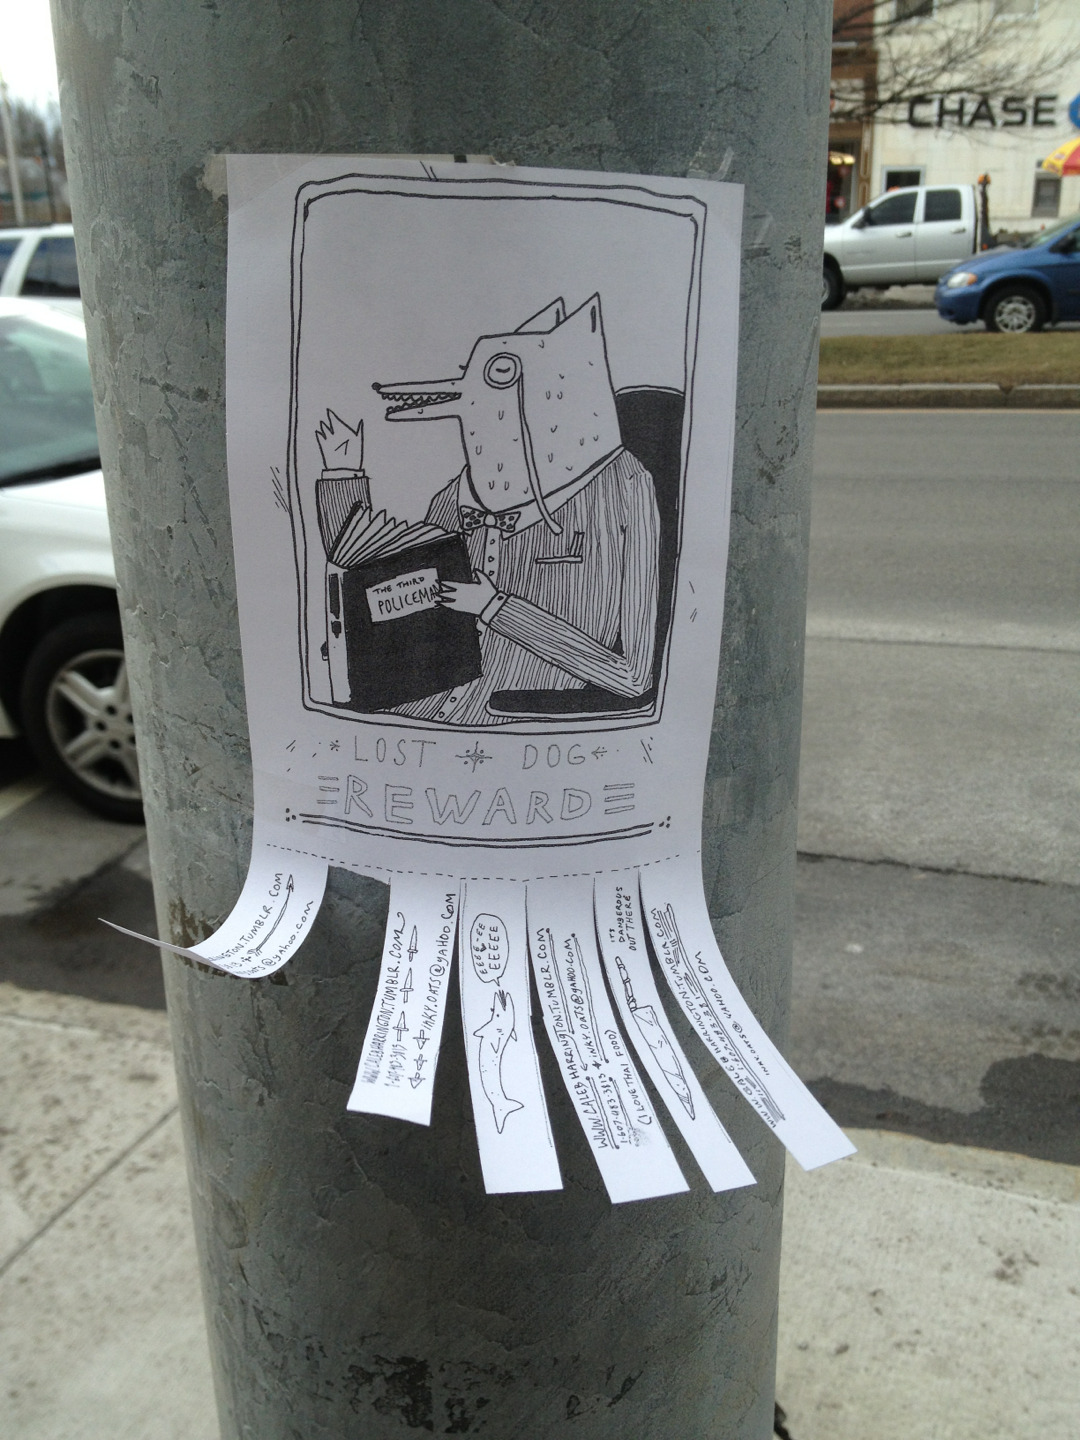 CHASE
THE THIRD
POLICEMA
LOST DOG
REWARD
NGTON.TUMBLR.COM
OATS@YAHOO.COM
WWW.CALEBHARRINGTON.TUMBLR.COM
INKY.OATS@YAHOO.COM
EEEE-EE
EEEEE
WWW.CALEBHARRINGTON.TUMBLR.COM
1-607-483-3815 INKY.OATS@YAHOO.COM
(I LOVE THAI FOOD)
ITS
DANGEROUS
OUT THERE
WWW.CALEBHARRINGTON.TUMBLR.COM
INKY.OATS@YAHOO.COM